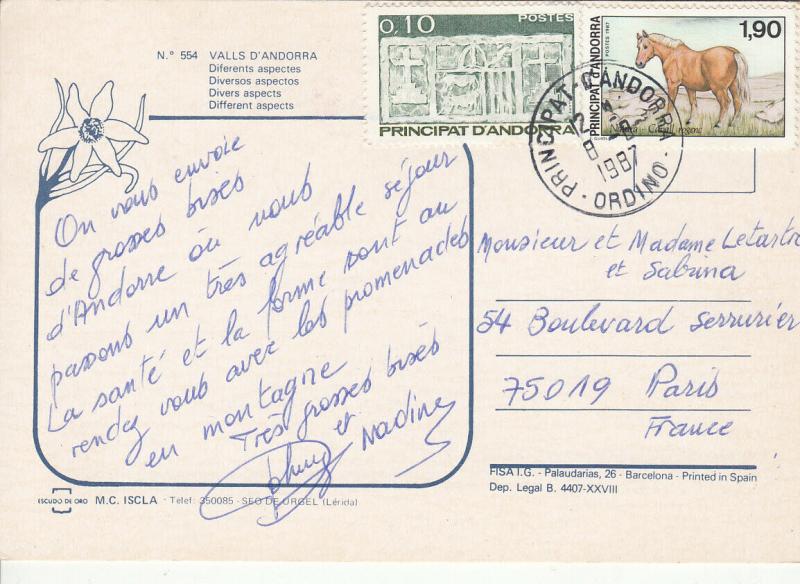 N.º 554 VALLS D'ANDORRA
Diferents aspectes
Diversos aspectos
Divers aspects
Different aspects
0,10 POSTES
PRINCIPAT D'ANDORRA
1,90
PRINCIPAT D'ANDORRA
POSTES 1987
PRINCIPAT-D'ANDORRA
1987
- ORDINO -
On vous envoie
de grosses bises
d'Andorre où nous
passons un très agréable séjour
La santé et la forme sont au
rendez vous avec les promenades
en montagne
Très grosses bisés
et Nadine
Monsieur et Madame Letartre
et Sabrina
54 Boulevard Serrurier
75019 Paris
France
FISA I.G. - Palaudarias, 26 - Barcelona - Printed in Spain
Dep. Legal B. 4407-XXVIII
ESCUDO DE ORO M.C. ISCLA - Telef: 350085 - SEO DE URGEL (Lérida)